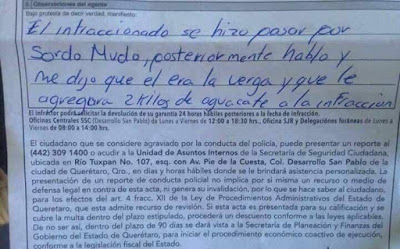 Observaciones del agente
Bajo protesta de decir verdad, manifiesto:
El infraccionado se hizo pasar por
Sordo Mudo, posteriormente hablo y
me dijo que el era la verga y que le
agregara 2 kilos de aguacate a la infraccion
El infractor podrá solicitar la devolución de su garantía 24 horas hábiles posteriores a la fecha de infracción.
Oficinas Centrales SSC (Desarrollo San Pablo) de Lunes a Viernes de 12:00 a 18:30 hrs., Oficina SJR y Delegaciones foráneas de Lunes a
Viernes de 08:00 a 14:00 hrs.
El ciudadano que se considere agraviado por la conducta del policía, puede presentar un reporte al
(442) 309 1400 o acudir a la Unidad de Asuntos Internos de la Secretaría de Seguridad Ciudadana,
ubicada en Río Tuxpan No. 107, esq. con Av. Pie de la Cuesta, Col. Desarrollo San Pablo de la
ciudad de Querétaro, Qro., en días y horas hábiles donde se le brindará asistencia personalizada. La
presentación de un reporte de conducta policial no implica por si mismo un recurso o medio de
defensa legal en contra de esta acta, ni genera su invalidación, por lo que se hace saber al ciudadano,
para los efectos del art. 4 fracc. XII de la Ley de Procedimientos Administrativos del Estado de
Querétaro, que esta admite recurso de revisión. Si esta acta es presentada para su calificación y se
cubre la multa dentro del plazo estipulado, procederá un descuento conforme a las leyes aplicables.
De no ser así, dentro del plazo de 90 días se dará vista a la Secretaría de Planeación y Finanzas del
Gobierno del Estado de Querétaro, para iniciar el procedimiento económico coactivo de ejecución,
conforme a la legislación fiscal del Estado.